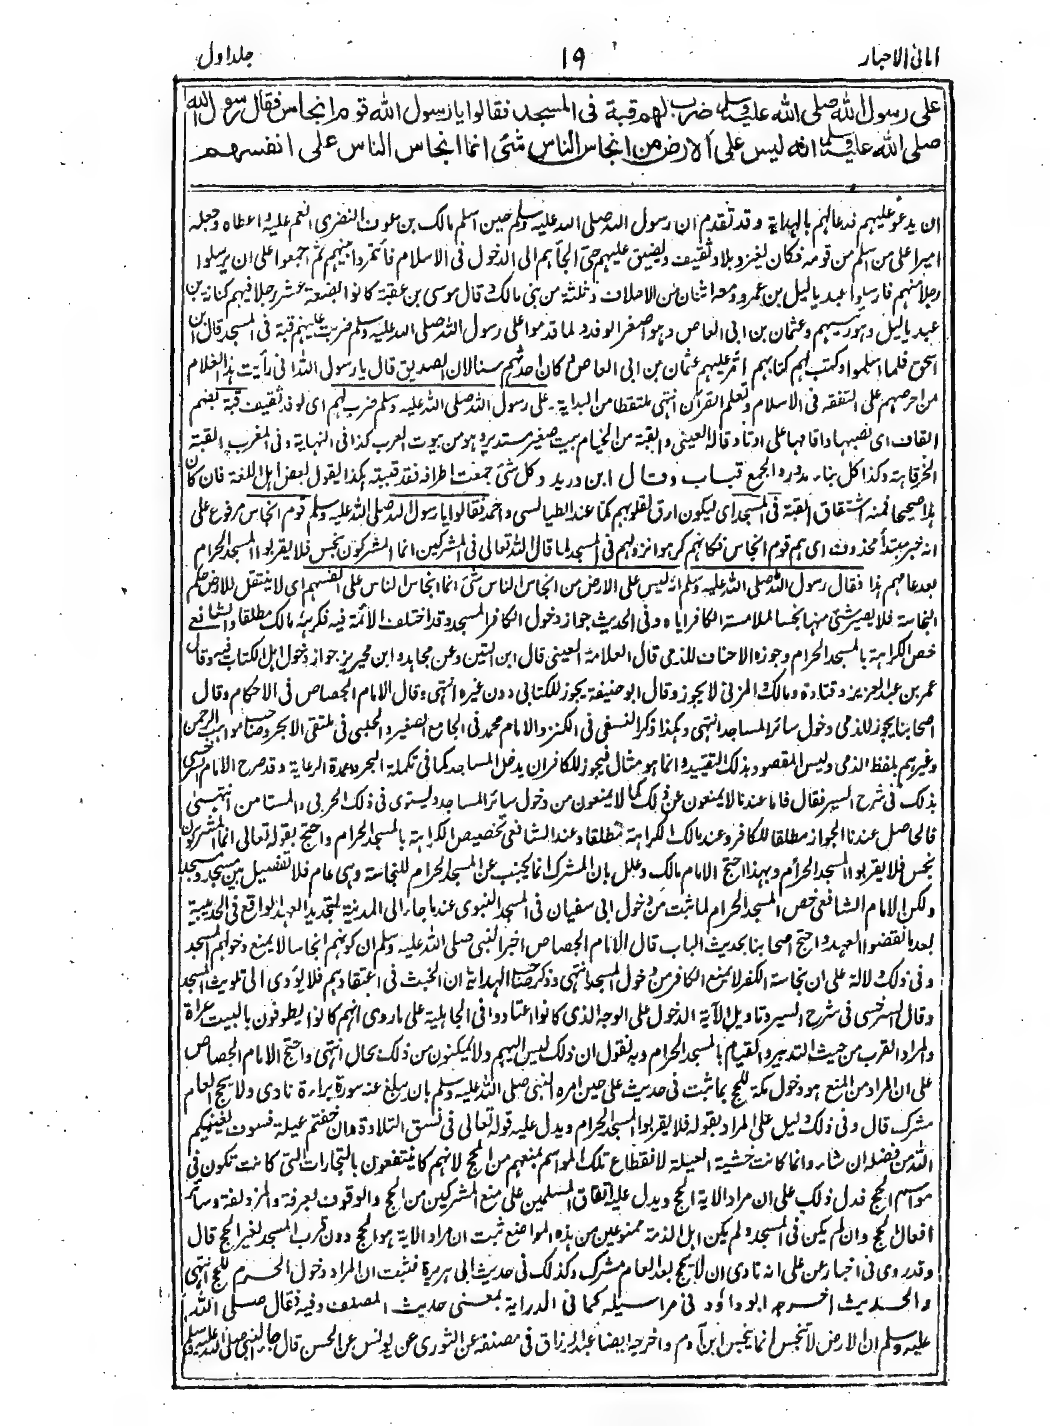 امانی الاحبار
۱۹
جلد اول
على رسول الله صلى الله عليه وسلم ضرب لهم قبة فى المسجد فقالوا يا رسول الله قوم انجاس فقال رسول الله
صلى الله عليه وسلم انه ليس على الارض من انجاس الناس شئ انما انجاس الناس على انفسهم
ان يدعو عليهم فدعا لهم بالهداية وقد تقدم ان رسول الله صلى الله عليه وسلم حين اسلم مالك بن عوف النضرى انعم عليه واعطاه وجعله
اميرا على من اسلم من قومه فكان يغزو بلاد ثقيف ويضيق عليهم حتى الجأهم الى الدخول فى الاسلام فأتمروا بينهم ثم اجمعوا على ان يرسلوا
رجلا منهم فارسلوا عبد ياليل بن عمرو ومعه اثنان من الاحلاف وثلثة من بنى مالك قال موسى بن عقبة كانوا بضعة عشر رجلا فيهم كنانة بن
عبد ياليل وهو رئيسهم وعثمان بن ابى العاص وهو اصغر الوفد ولما قدموا على رسول الله صلى الله عليه وسلم ضربت عليهم قبة فى المسجد قال ابن
اسحق فلما اسلموا وكتب لهم كتابهم امر عليهم عثمان بن ابى العاص وكان احدثهم سنا لان الصديق قال يا رسول الله انى رأيت هذا الغلام
من احرصهم على التفقه فى الاسلام وتعلم القرآن انتهى ملتقطا من البداية۔ على رسول الله صلى الله عليه وسلم ضرب لهم اى لوفد ثقيف قبة بضم
القاف اى نصبها واقامها على اوتاد قاله العينى والقبة من الخيام بيت صغير مستدير وهو من بيوت العرب كذا فى النهاية وفى المغرب القبة
الخرقاهة وكذا كل بناء مدور والجمع قباب وقال ابن دريد وكل شئ جمعت اطرافه فقد قببته هكذا يقول بعض اهل اللغة فان كان
هذا صحيحا فمنه اشتقاق القبة فى المسجد اى ليكون ارق لقلوبهم كما عند الطيالسى واحمد فقالوا يا رسول الله صلى الله عليه وسلم قوم انجاس مرفوع على
انه خبر مبتدأ محذوف اى هم قوم انجاس فكانهم كرهوا نزولهم فى المسجد لما قال الله تعالى فى المشركين انما المشركون نجس فلا يقربوا المسجد الحرام
بعد عامهم هذا فقال رسول الله صلى الله عليه وسلم انه ليس على الارض من انجاس الناس شئ انما انجاس الناس على انفسهم اى لا ينتقل للارض حكم
النجاسة فلا يصير شئ منها نجسا لملامسة الكافر اياه وفى الحديث جواز دخول الكافر المسجد وقد اختلف الأئمة فيه فكرهه مالك مطلقا والشافعى
خص الكراهة بالمسجد الحرام وجوزه الاحناف للذمى قال العلامة العينى قال ابن التين وعن مجاهد وابن محيريز جواز دخول اهل الكتاب فيه وقال
عمر بن عبد العزيز وقتادة ومالك والمزنى لا يجوز وقال ابو حنيفة يجوز للكتابى دون غيره انتهى وقال الامام الجصاص فى الاحكام وقال
اصحابنا يجوز للذمى دخول سائر المساجد انتهى وهكذا ذكر النسفى فى الكنز والامام محمد فى الجامع الصغير والحلبى فى ملتقى الابحر وصاحب مواهب الرحمن
وغيرهم بلفظ الذمى وليس المقصود بذلك التقييد وانما هو مثال فيجوز للكافر ان يدخل المساجد كما فى تكملة البحر وعمدة الرعاية وقد صرح الامام السرخسى
بذلك فى شرح السير فقال فاما عندنا لا يمنعون عن ذلك كما لا يمنعون من دخول سائر المساجد ويستوى فى ذلك الحربى والمستامن انتهى
فالحاصل عندنا الجواز مطلقا للكافر وعند مالك الكراهة مطلقا وعند الشافعى تخصيص الكراهة بالمسجد الحرام واحتج بقوله تعالى انما المشركون
نجس فلا يقربوا المسجد الحرام وبهذا احتج الامام مالك وعلل بان المشرك انما يجنب عن المسجد الحرام للنجاسة وهى عام فلا تفصيل بين مسجد ومسجد
ولكن الامام الشافعى خص المسجد الحرام لما ثبت من دخول ابى سفيان فى المسجد النبوى عند ما جاء الى المدينة لتجديد العهد الواقع فى الحديبية
بعد ما نقضوا العهد واحتج اصحابنا بحديث الباب قال الامام الجصاص اخبر النبى صلى الله عليه وسلم ان كونهم انجاسا لا يمنع دخولهم المسجد
وفى ذلك دلالة على ان نجاسة الكفر لا يمنع الكافر من دخول المسجد انتهى وذكر صاحب الهداية ان الخبث فى اعتقادهم فلا يؤدى الى تلويث المسجد
وقال السرخسى فى شرح السير وتاويل الآية الدخول على الوجه الذى كانوا اعتادوا فى الجاهلية على ما روى انهم كانوا يطوفون بالبيت عراة
والمراد القرب من حيث التدبير والقيام بالمسجد الحرام وبه نقول ان ذلك ليس اليهم ولا يمكنون من ذلك بحال انتهى واحتج الامام الجصاص
على ان المراد من المنع هو دخول مكة للحج بما ثبت فى حديث على حين امره النبى صلى الله عليه وسلم بان يبلغ عنه سورة براءة نادى ولا يحج العام
مشرك قال وفى ذلك دليل على المراد بقوله فلا يقربوا المسجد الحرام ويدل عليه قوله تعالى فى نسق التلاوة وان خفتم عيلة فسوف يغنيكم
الله من فضله ان شاء وانما كانت خشية العيلة لانقطاع تلك المواسم بمنعهم من الحج لانهم كانوا ينتفعون بالتجارات التى كانت تكون فى
مواسم الحج فدل ذلك على ان مراد الاية الحج ويدل عليه اتفاق المسلمين على منع المشركين من الحج والوقوف بعرفة والمزدلفة وسائر
افعال الحج وان لم يكن فى المسجد ولم يكن اهل الذمة ممنوعين من هذه المواضع ثبت ان مراد الاية هو الحج دون قرب المسجد لغير الحج قال
وقد روى فى اخبار عن على انه نادى ان لا يحج بعد العام مشرك وكذلك فى حديث ابى هريرة فثبت ان المراد دخول الحرم للحج انتهى
والحديث اخرجه ابو داود فى مراسيله كما فى الدراية بمعنى حديث المصنف وفيه فقال صلى الله
عليه وسلم ان الارض لا تنجس انما ينجس ابن آدم واخرجه ايضا عبد الرزاق فى مصنفه عن الثورى عن يونس عن الحسن قال جاء النبى صلى الله عليه وسلم